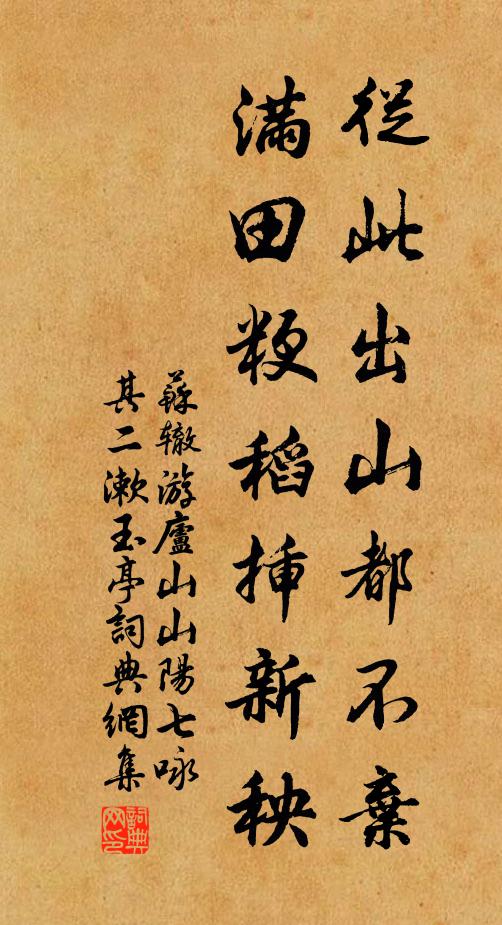 從此出山都不棄
滿田粳稻揷新秧
蘇辙游廬山山陽七咏
其二漱玉亭詞典網集
詞典网印